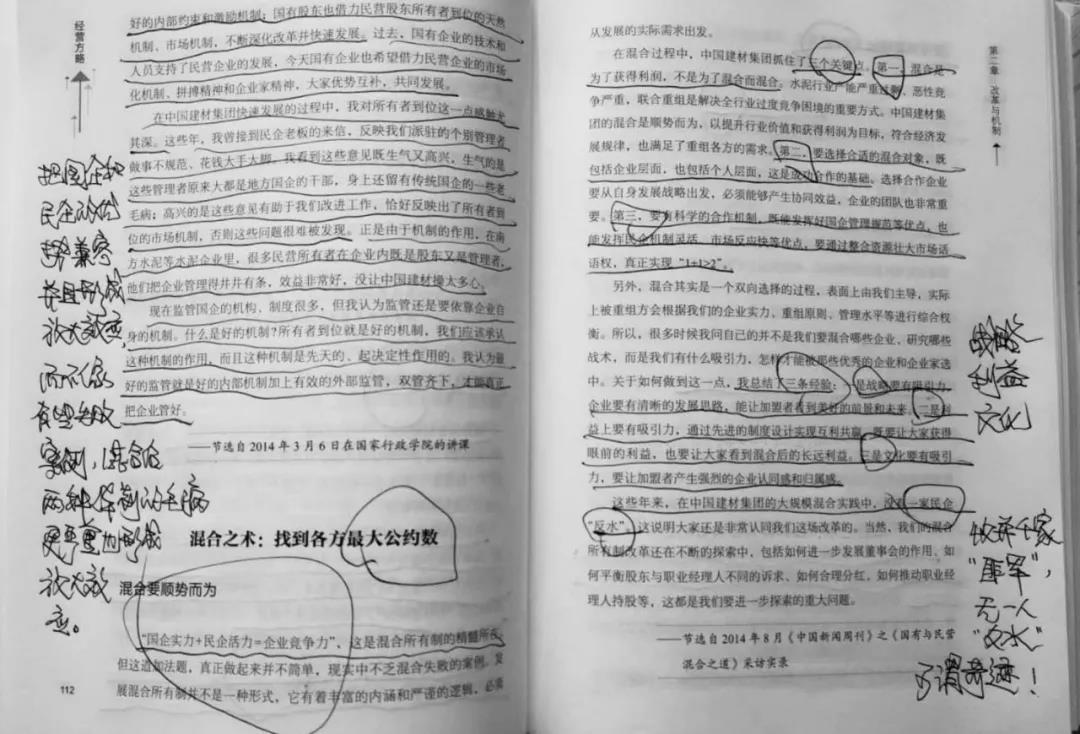 经营方略
好的内部约束和激励机制；国有股东也借力民营股东所有者到位的天然
机制、市场机制，不断深化改革并快速发展。过去，国有企业的技术和
人员支持了民营企业的发展，今天国有企业也希望借力民营企业的市场
化机制、拼搏精神和企业家精神，大家优势互补，共同发展。
在中国建材集团快速发展的过程中，我对所有者到位这一点感触尤
其深。这些年，我曾接到民企老板的来信，反映我们派驻的个别管理者
做事不规范、花钱大手大脚。我看到这些意见既生气又高兴，生气的是
这些管理者原来大都是地方国企的干部，身上还留有传统国企的一些老
毛病；高兴的是这些意见有助于我们改进工作，恰好反映出了所有者到
位的市场机制，否则这些问题很难被发现。正是由于机制的作用，在南
方水泥等水泥企业里，很多民营所有者在企业内既是股东又是管理者，
他们把企业管理得井井有条，效益非常好，没让中国建材操太多心。
现在监管国企的机构、制度很多，但我认为监管还是要依靠企业自
身的机制。什么是好的机制？所有者到位就是好的机制，我们应该承认
这种机制的作用，而且这种机制是先天的、起决定性作用的。我认为最
好的监管就是好的内部机制加上有效的外部监管，双管齐下，才能真正
把企业管好。
——节选自 2014 年 3 月 6 日在国家行政学院的讲课
混合之术：找到各方最大公约数
混合要顺势而为
“国企实力+民企活力=企业竞争力”，这是混合所有制的精髓所在，
但这道加法题，真正做起来并不简单，现实中不乏混合失败的案例。发
展混合所有制并不是一种形式，它有着丰富的内涵和严谨的逻辑，必须
112
把国企和
民企的优
势兼容
并且形成
放大效应，
而不像
有些失败
案例，混合后
两种体制的毛病
更严重的形成
放大效
应。
第二章 改革与机制
从发展的实际需求出发。
在混合过程中，中国建材集团抓住了三个关键点。第一，混合是
为了获得利润，不是为了混合而混合。水泥行业产能严重过剩、恶性竞
争严重，联合重组是解决全行业过度竞争困境的重要方式。中国建材集
团的混合是顺势而为，以提升行业价值和获得利润为目标，符合经济发
展规律，也满足了重组各方的需求。第二，要选择合适的混合对象，既
包括企业层面，也包括个人层面，这是成功合作的基础。选择合作企业
要从自身发展战略出发，必须能够产生协同效益，企业的团队也非常重
要。第三，要有科学的合作机制，既能发挥好国企管理规范等优点，也
能发挥民企机制灵活、市场反应快等优点，要通过整合资源壮大市场话
语权，真正实现“1+1>2”。
另外，混合其实是一个双向选择的过程，表面上由我们主导，实际
上被重组方会根据我们的企业实力、重组原则、管理水平等进行综合权
衡。所以，很多时候我问自己的并不是我们要混合哪些企业、研究哪些
战术，而是我们有什么吸引力，怎样才能被那些优秀的企业和企业家选
中。关于如何做到这一点，我总结了三条经验：一是战略要有吸引力，
企业要有清晰的发展思路，能让加盟者看到美好的前景和未来。二是利
益上要有吸引力，通过先进的制度设计实现互利共赢，既要让大家获得
眼前的利益，也要让大家看到混合后的长远利益。三是文化要有吸引
力，要让加盟者产生强烈的企业认同感和归属感。
这些年来，在中国建材集团的大规模混合实践中，没有一家民企
“反水”，这说明大家还是非常认同我们这场改革的。当然，我们的混合
所有制改革还在不断的探索中，包括如何进一步发展董事会的作用、如
何平衡股东与职业经理人不同的诉求、如何合理分红、如何推动职业经
理人持股等，这都是我们要进一步探索的重大问题。
——节选自 2014 年 8 月《中国新闻周刊》之《国有与民营
混合之道》采访实录
战略
利益
文化
收编千家
无一人
“反水”
可谓奇迹！